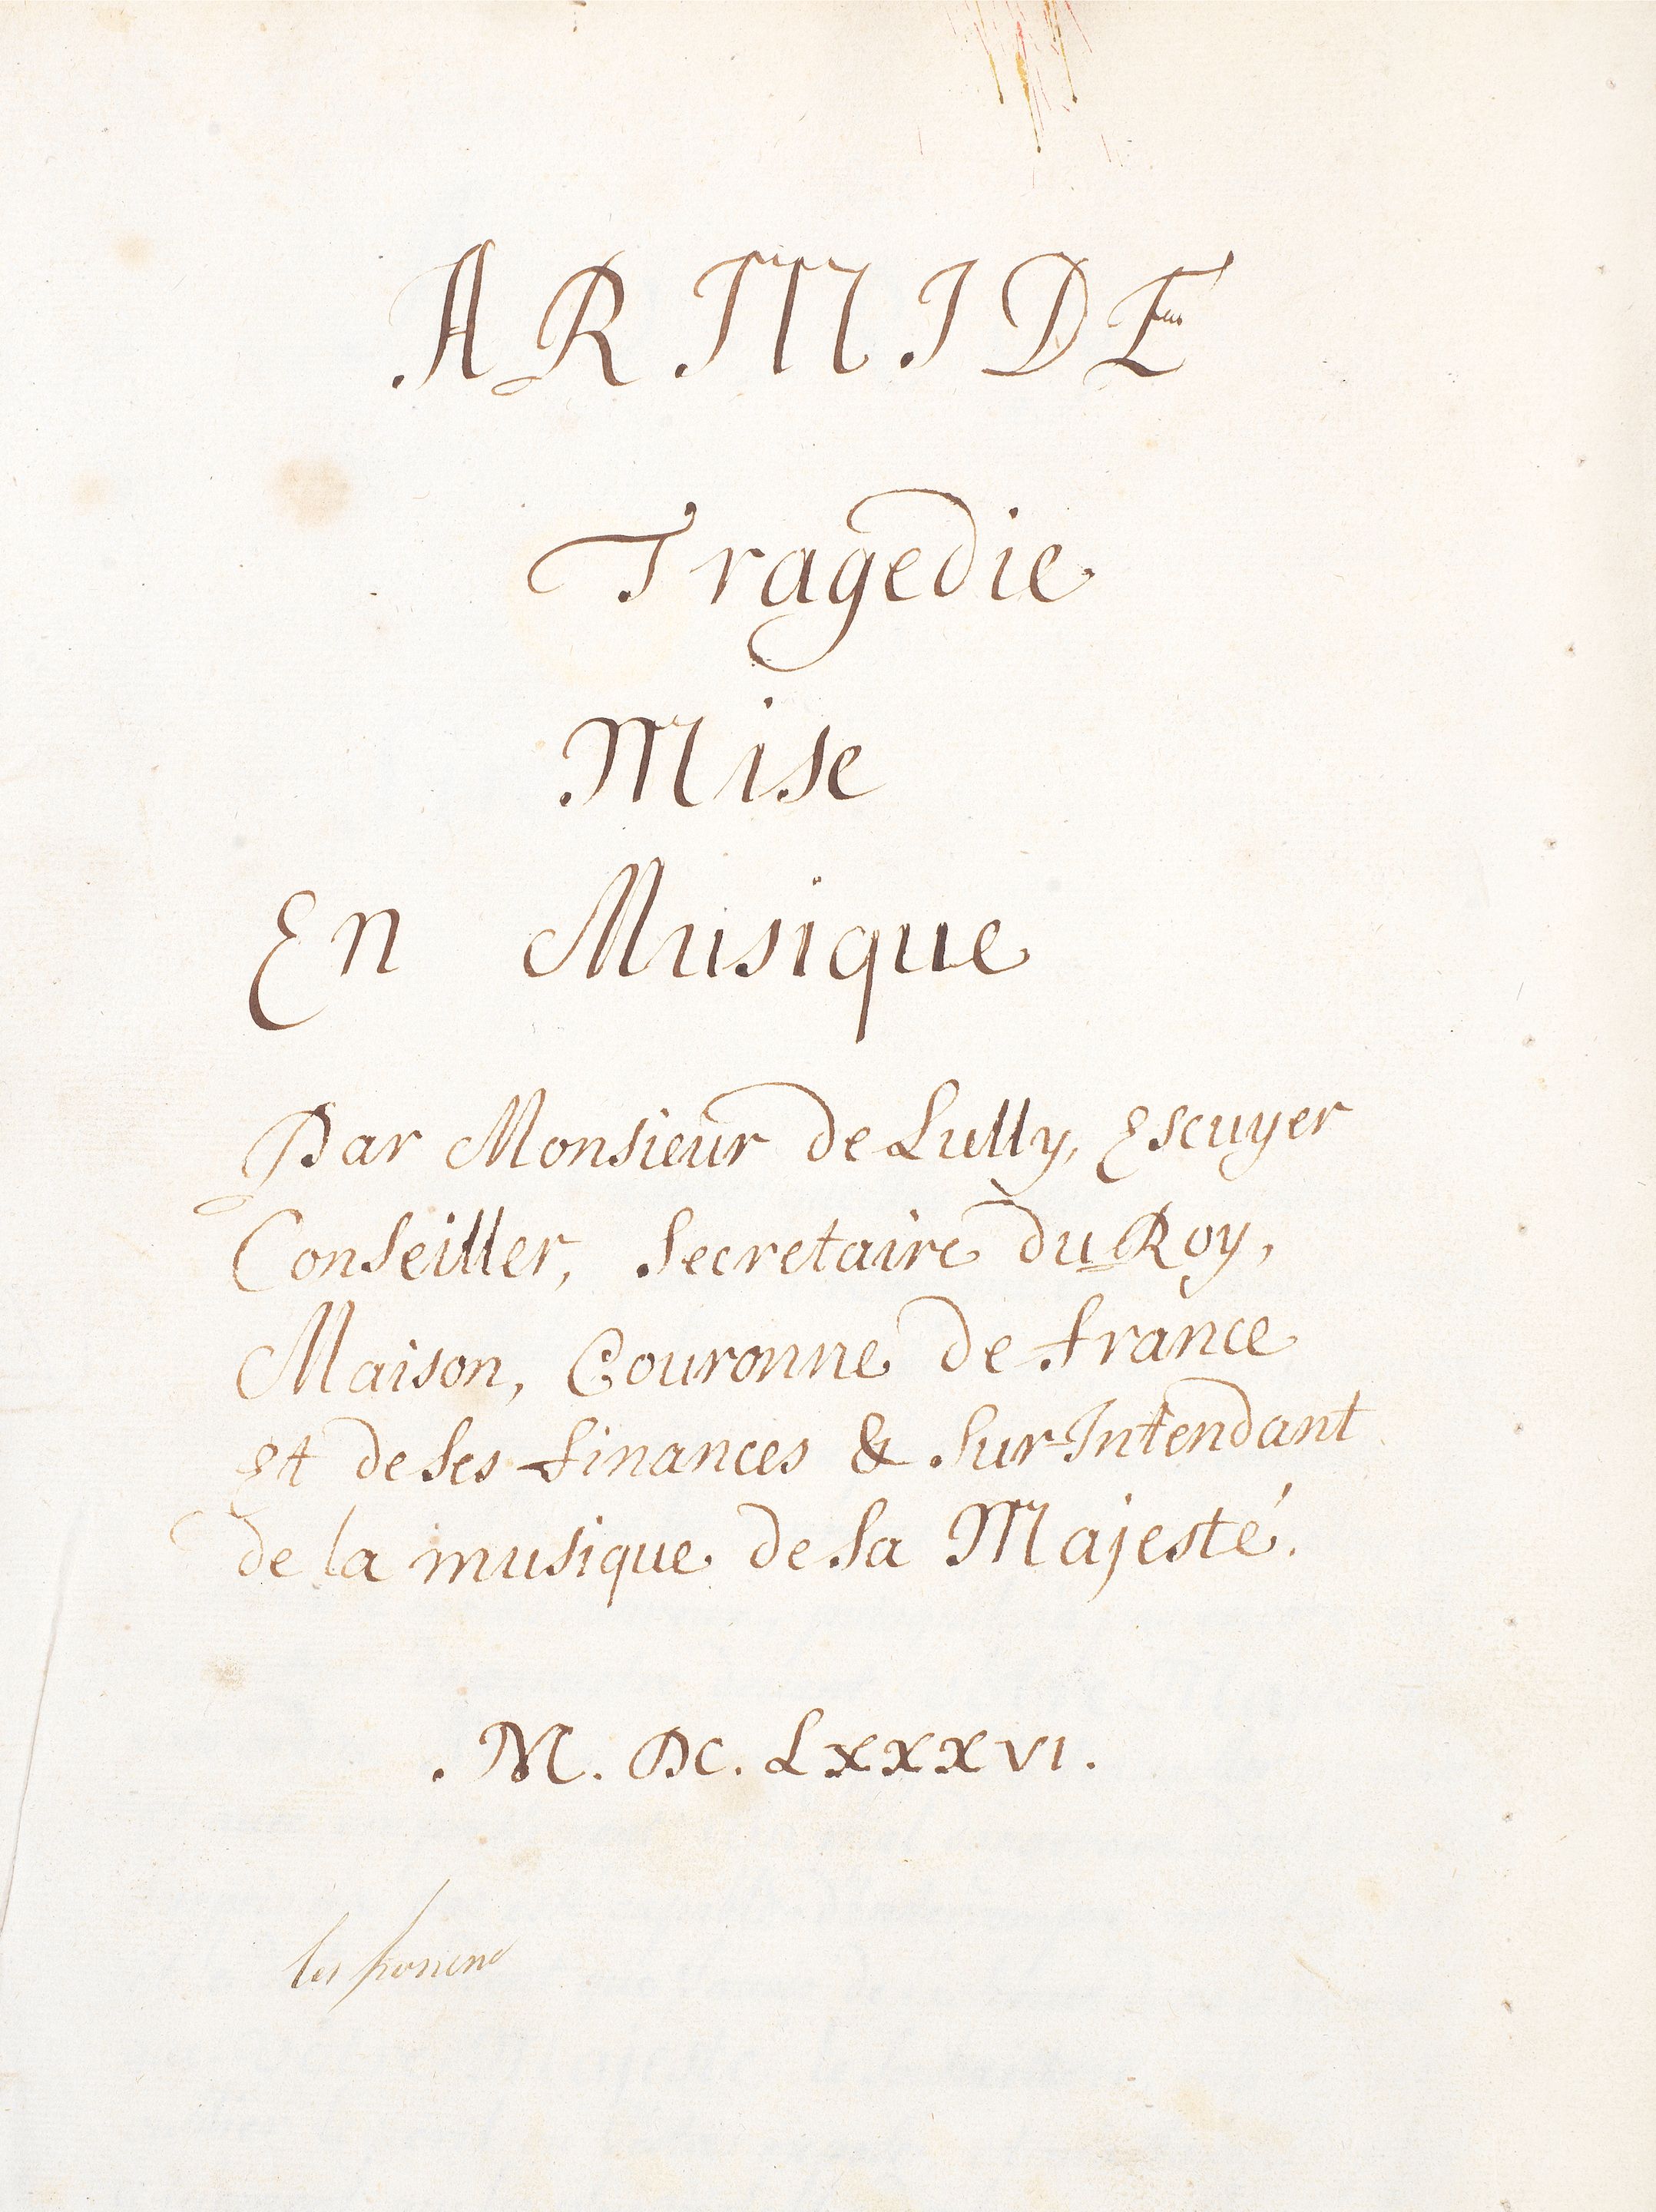 ARMIDE
Tragedie
Mise
En Musique
Par Monsieur de Lully, Escuyer
Conseiller, Secretaire du Roy,
Maison, Couronne de france
Et de ses finances & Sur-Intendant
de la musique de sa Majesté.
.M. DC. LXXXVI.